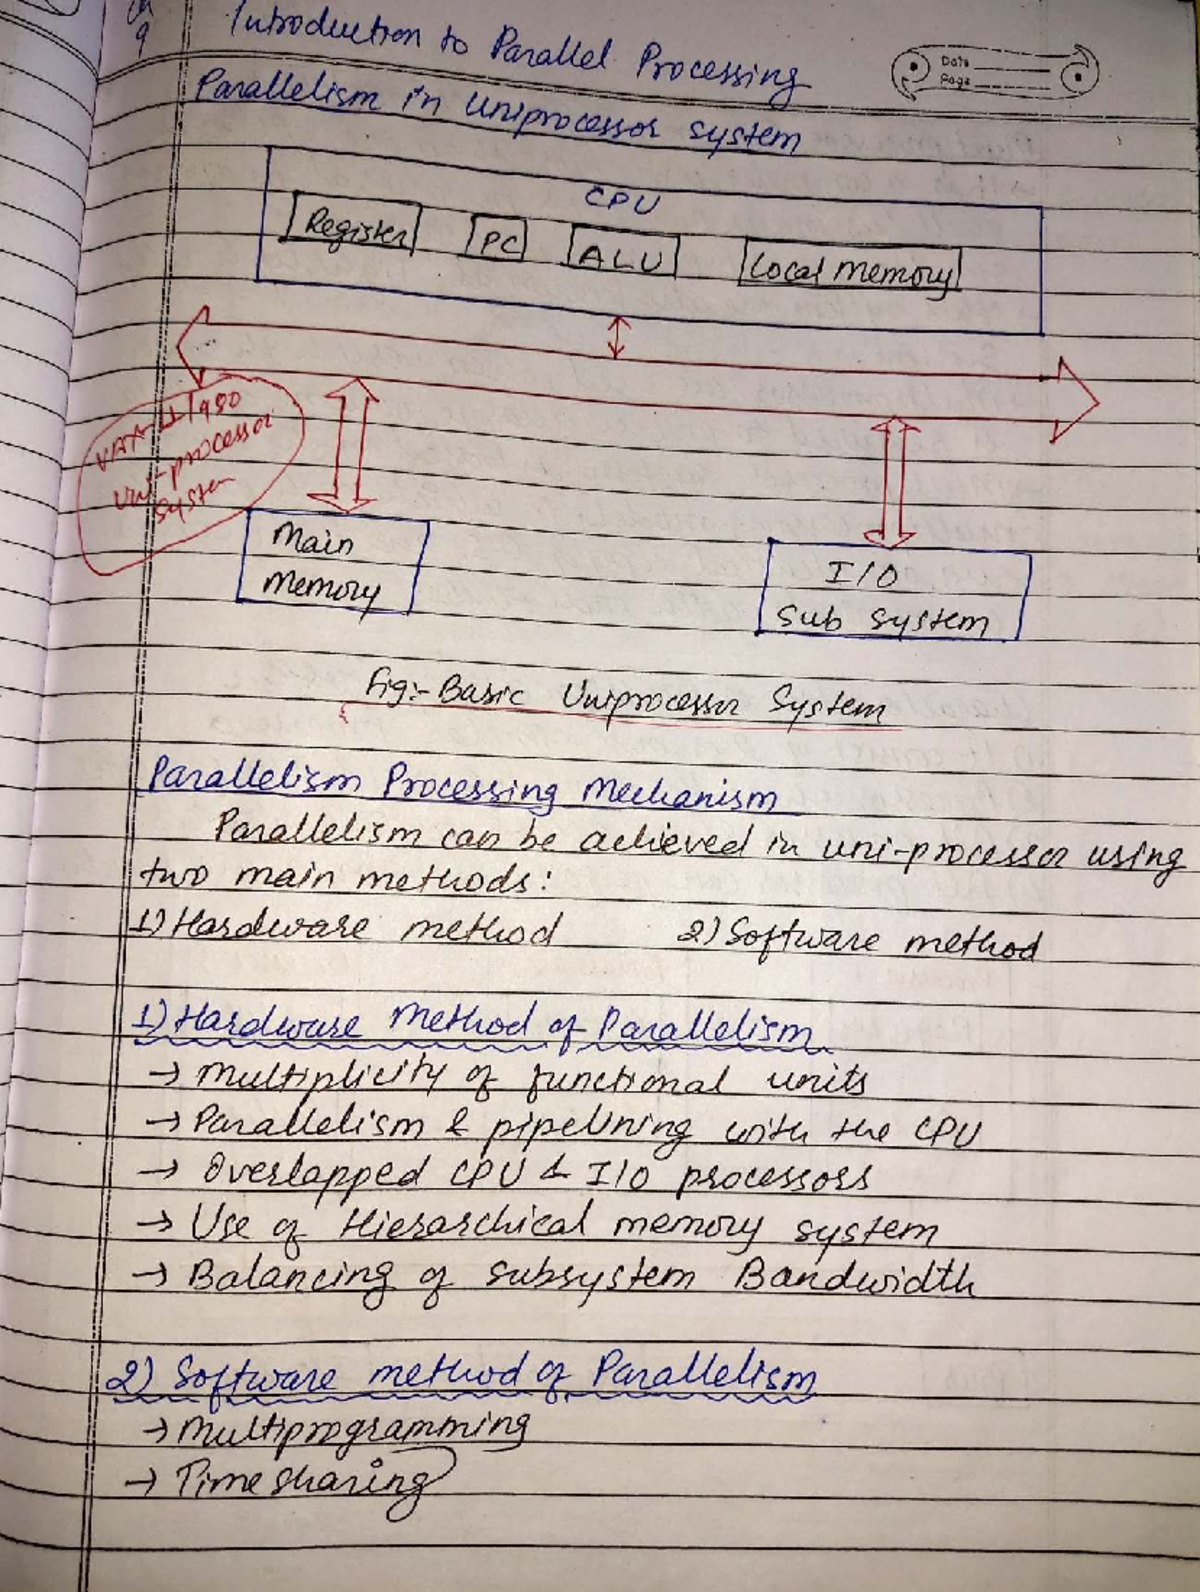 Ch
9
Introduction to Parallel Processing
Date
Page
Parallelism in Uniprocessor system
CPU
Register PC ALU Local memory
VAX-11/980
Uni-processor
System
Main
memory
I/O
Sub system
Fig:- Basic Uniprocessor System
Parallelism Processing Mechanism
Parallelism can be achieved in uni-processor using
two main methods:
1) Hardware method 2) Software method
1) Hardware Method of Parallelism
→ Multiplicity of functional units
→ Parallelism & pipelining with the CPU
→ Overlapped CPU & I/O processors
→ Use of Hierarchical memory system
→ Balancing of subsystem Bandwidth
2) Software method of Parallelism
→ Multiprogramming
→ Time sharing